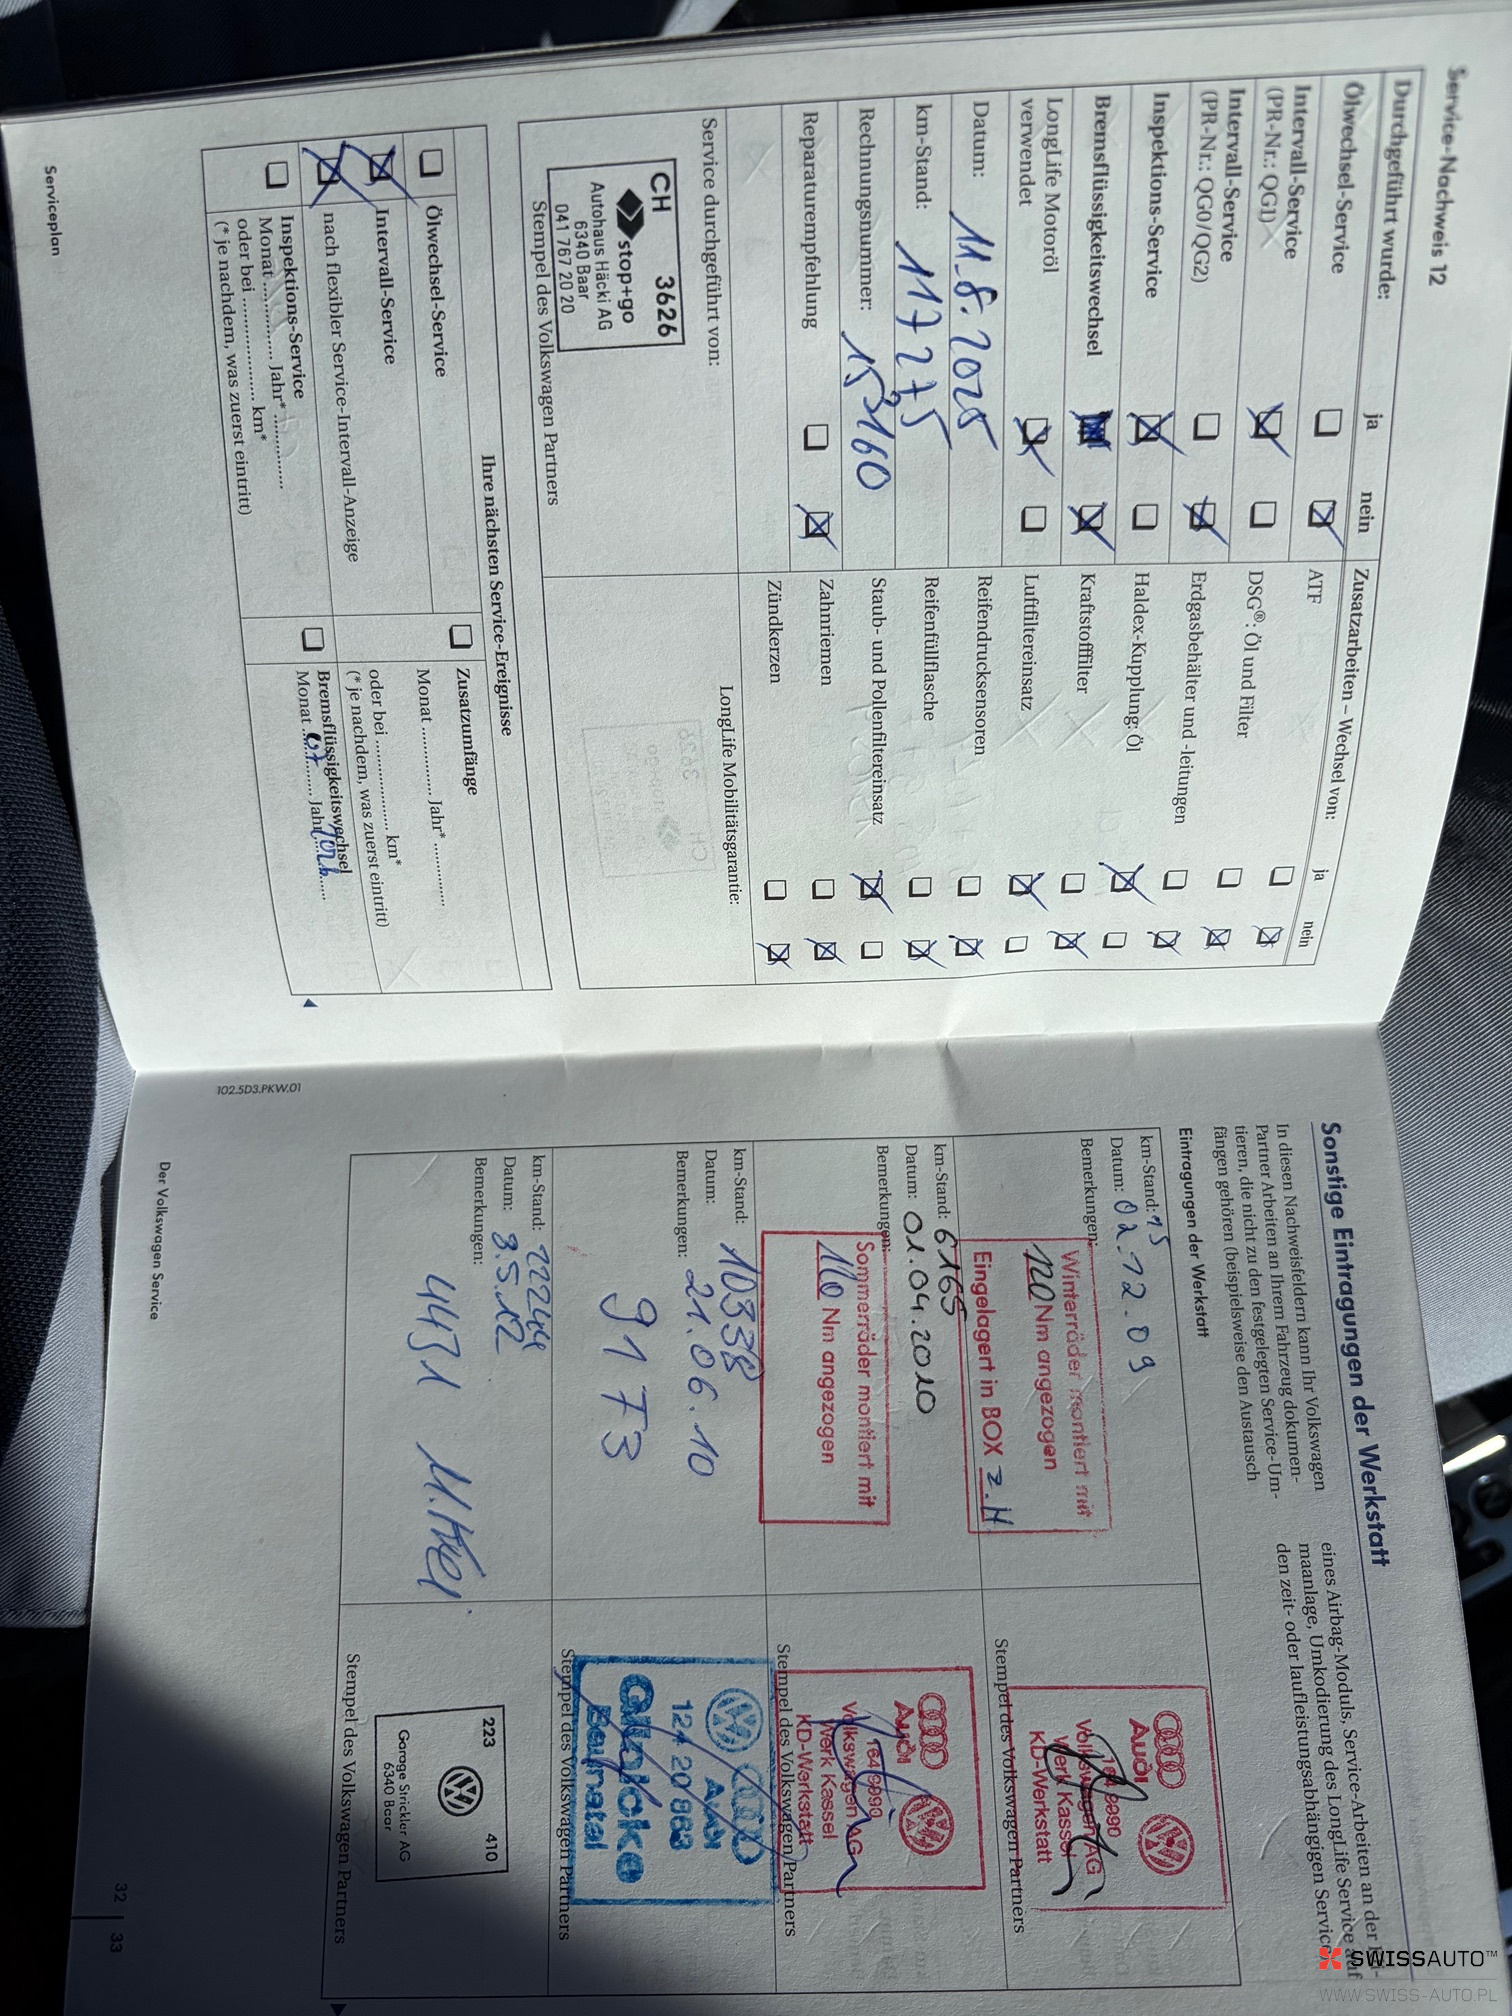 Service-Nachweis 12
Durchgeführt wurde: ja nein
Ölwechsel-Service
Intervall-Service
(PR-Nr.: QG1)
Intervall-Service
(PR-Nr.: QG0/QG2)
Inspektions-Service
Bremsflüssigkeitswechsel
LongLife Motoröl
verwendet
Datum: 11.8.2025
km-Stand: 117275
Rechnungsnummer:
Reparaturempfehlung
Zusatzarbeiten – Wechsel von: ja nein
ATF
DSG®: Öl und Filter
Erdgasbehälter und -leitungen
Haldex-Kupplung: Öl
Kraftstofffilter
Luftfiltereinsatz
Reifendrucksensoren
Reifenfüllflasche
Staub- und Pollenfiltereinsatz
Zahnriemen
Zündkerzen
Service durchgeführt von:
CH 3626
stop+go
Autohaus Häcki AG
6340 Baar
041 767 20 20
Stempel des Volkswagen Partners
LongLife Mobilitätsgarantie:
Ihre nächsten Service-Ereignisse
Ölwechsel-Service
Intervall-Service
nach flexibler Service-Intervall-Anzeige
Inspektions-Service
Monat ............. Jahr* ..............
oder bei ....................... km*
(* je nachdem, was zuerst eintritt)
Zusatzumfänge
Monat ............. Jahr* ..............
oder bei ....................... km*
(* je nachdem, was zuerst eintritt)
Bremsflüssigkeitswechsel
Monat 07 Jahr
Serviceplan
102.5D3.PKW.01
Sonstige Eintragungen der Werkstatt
In diesen Nachweisfeldern kann Ihr Volkswagen
Partner Arbeiten an Ihrem Fahrzeug dokumen-
tieren, die nicht zu den festgelegten Service-Um-
fängen gehören (beispielsweise den Austausch
eines Airbag-Moduls, Service-Arbeiten an der Kli-
maanlage, Umkodierung des LongLife Service auf
den zeit- oder laufleistungsabhängigen Service
Eintragungen der Werkstatt
km-Stand: 15
Datum: 02.12.09
Bemerkungen:
Winterräder montiert mit
120 Nm angezogen
Eingelagert in BOX z.H
Audi
164 9090
Volkswagen AG
Werk Kassel
KD-Werkstatt
Stempel des Volkswagen Partners
km-Stand: 6165
Datum: 01.04.2010
Bemerkungen:
Sommerräder montiert mit
110 Nm angezogen
Audi
164 9090
Volkswagen AG
Werk Kassel
KD-Werkstatt
Stempel des Volkswagen Partners
km-Stand: 10338
Datum: 21.06.10
Bemerkungen:
91 F3
Audi
124 20 863
Glinicke
Baunatal
Stempel des Volkswagen Partners
km-Stand: 22244
Datum: 3.5.12
Bemerkungen:
4431
223 410
Garage Strickler AG
6340 Baar
Stempel des Volkswagen Partners
Der Volkswagen Service
32 | 33
SWISSAUTO™
WWW.SWISS-AUTO.PL